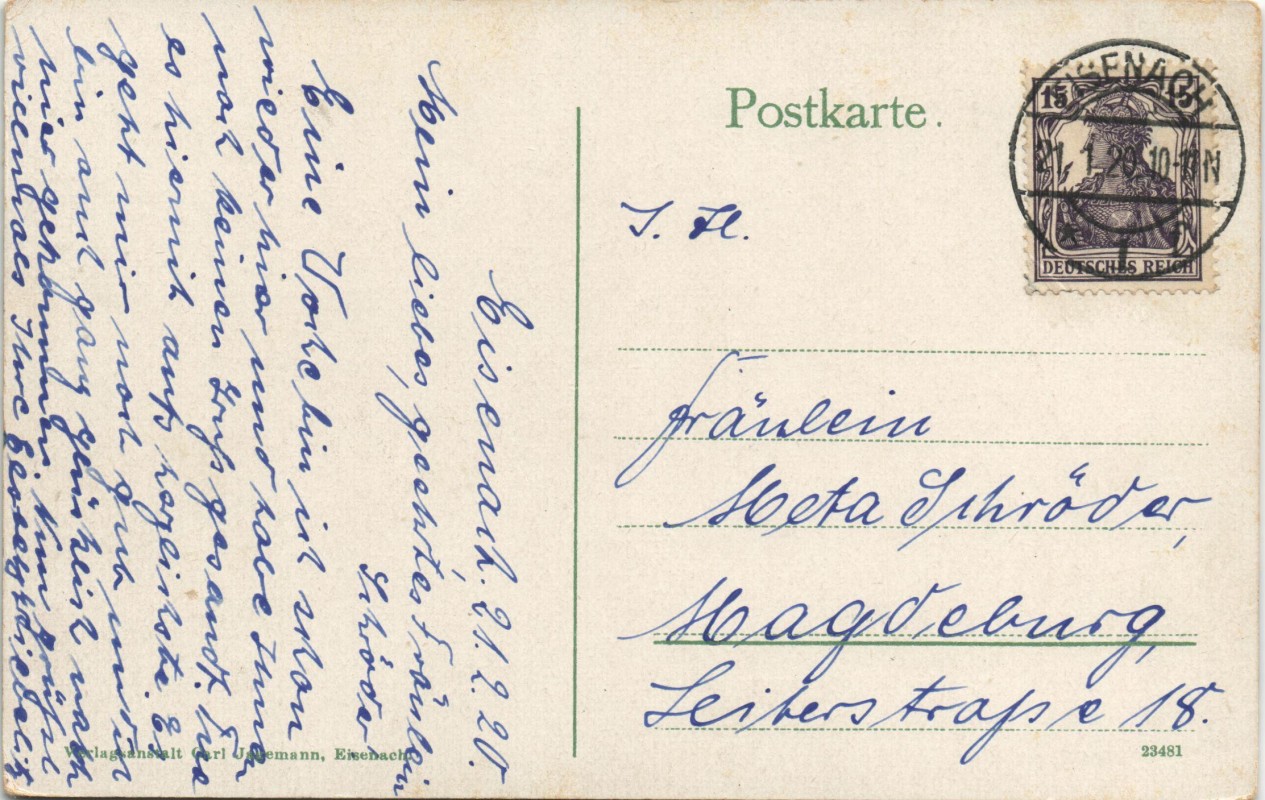 Postkarte.
EISENACH
21.1.20.10-11N
* 1 c
15 15
DEUTSCHES REICH
J. H.
Fräulein
Meta Schröder,
Magdeburg,
Leiterstraße 18.
Eisenach. 21.2.20.
Mein liebes, geehrtes Fräulein
Schröder
Eine Woche bin ich schon
wieder hier und habe Ihnen
noch keinen Gruß gesandt. Tue
es hiermit aufs herzlichste. Es
geht mir noch gut und ich
bin auch ganz glücklich nach
hier gekommen. Nun
Ihre
Verlagsanstalt Carl Jagemann, Eisenach
23481